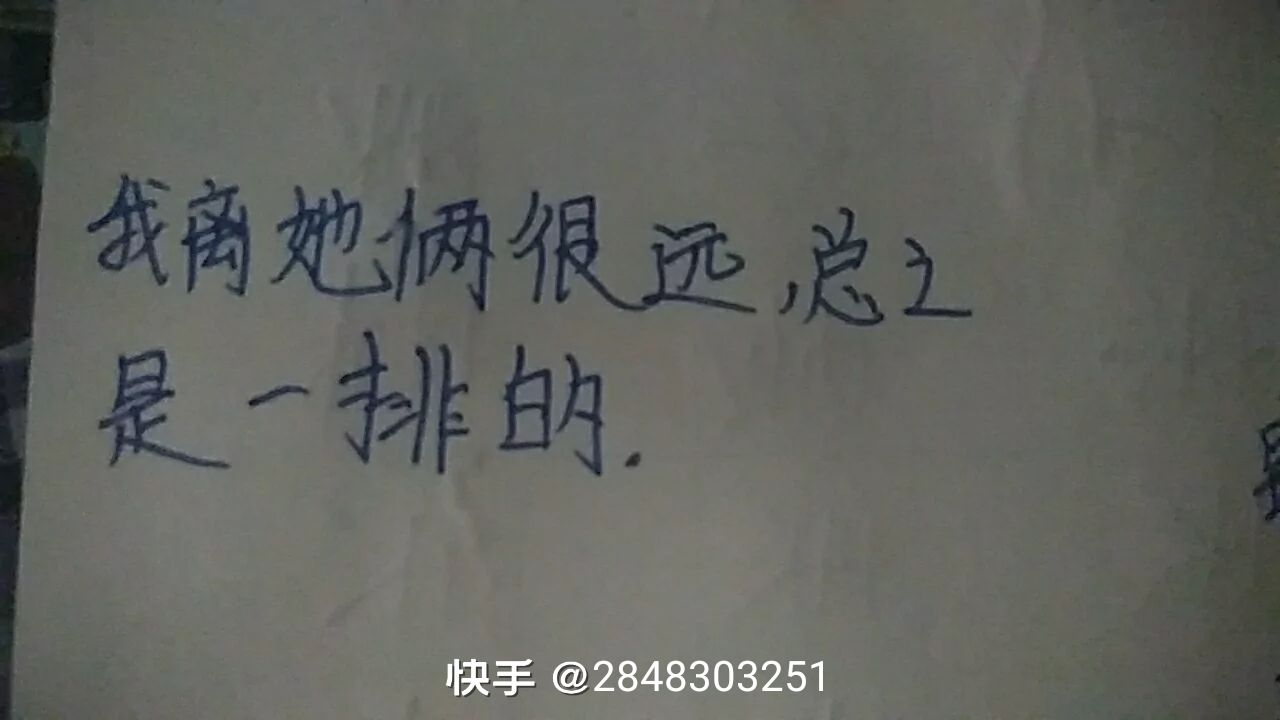 我离她俩很远，总之
是一排的.
快手 @2848303251